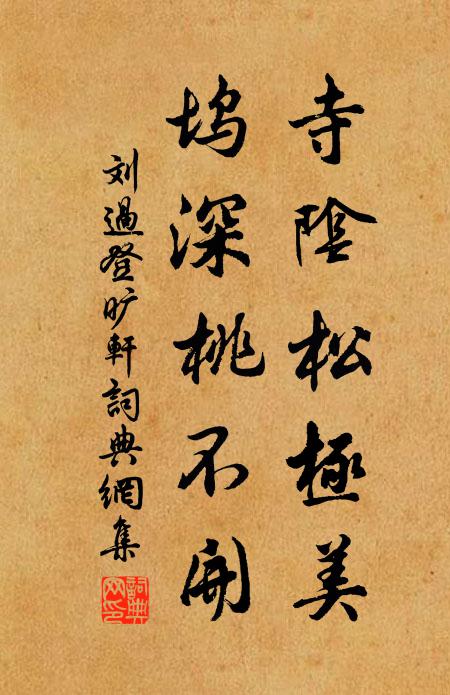 寺陰松極美
塢深桃不開
刘過登旷軒詞典網集
詞典网印